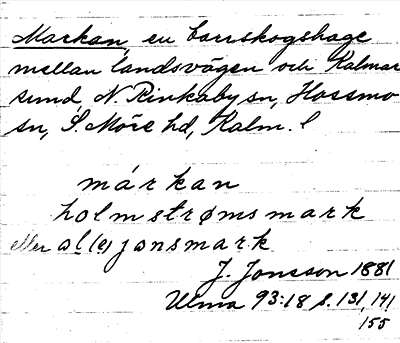 Markan, en barrskogshage
mellan landsvägen och Kalmar
sund, N. Rinkaby sn, Hossmo
sn, S. Möre hd, Kalm. l
márkan
holmstrømsmark
eller al(e)jonsmark
J. Jonsson 1881
Ulma 93:18 s. 131, 141
155